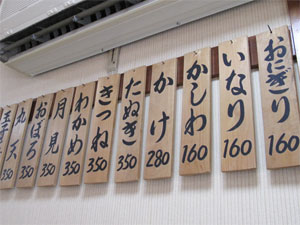 おにぎり 160
いなり 160
かしわ 160
かけ 280
たぬき 350
きつね 350
わかめ 350
月見 350
おぼろ 350
丸天 350
玉子とじ 350